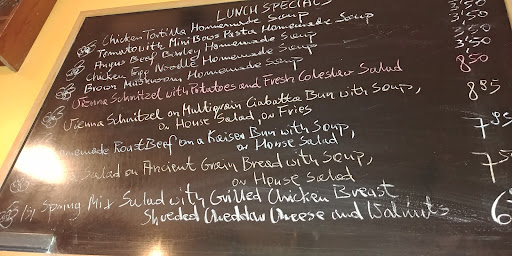 LUNCH SPECIALS
Chicken Tortilla Homemade Soup 3,50
Tomato with Mini Bows Pasta Homemade Soup 3,50
Angus Beef Barley Homemade Soup 3,50
Chicken Egg Noodle Homemade Soup 3,50
Brown Mushroom Homemade Soup
Vienna Schnitzel with Potatoes and Fresh Coleslaw Salad 8,50
Vienna Schnitzel on Multigrain Ciabatta Bun with Soup, 8,95
or House Salad, or Fries
Homemade Roast Beef on a Kaiser Bun with Soup, 7
or House Salad
Salad on Ancient Grain Bread with Soup, 7
or House Salad
Spring Mix Salad with Grilled Chicken Breast 6
Shreded Cheddar Cheese and Walnuts